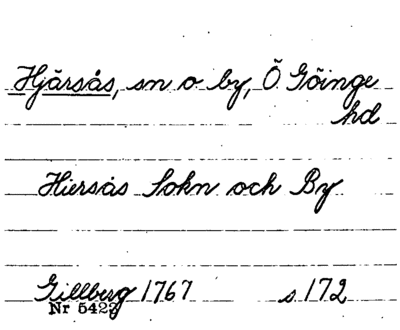 Hjärsås, sn o by, Ö Göinge
hd
Hiersås Sokn och By
Gillberg 1767 s 172
Nr 5423